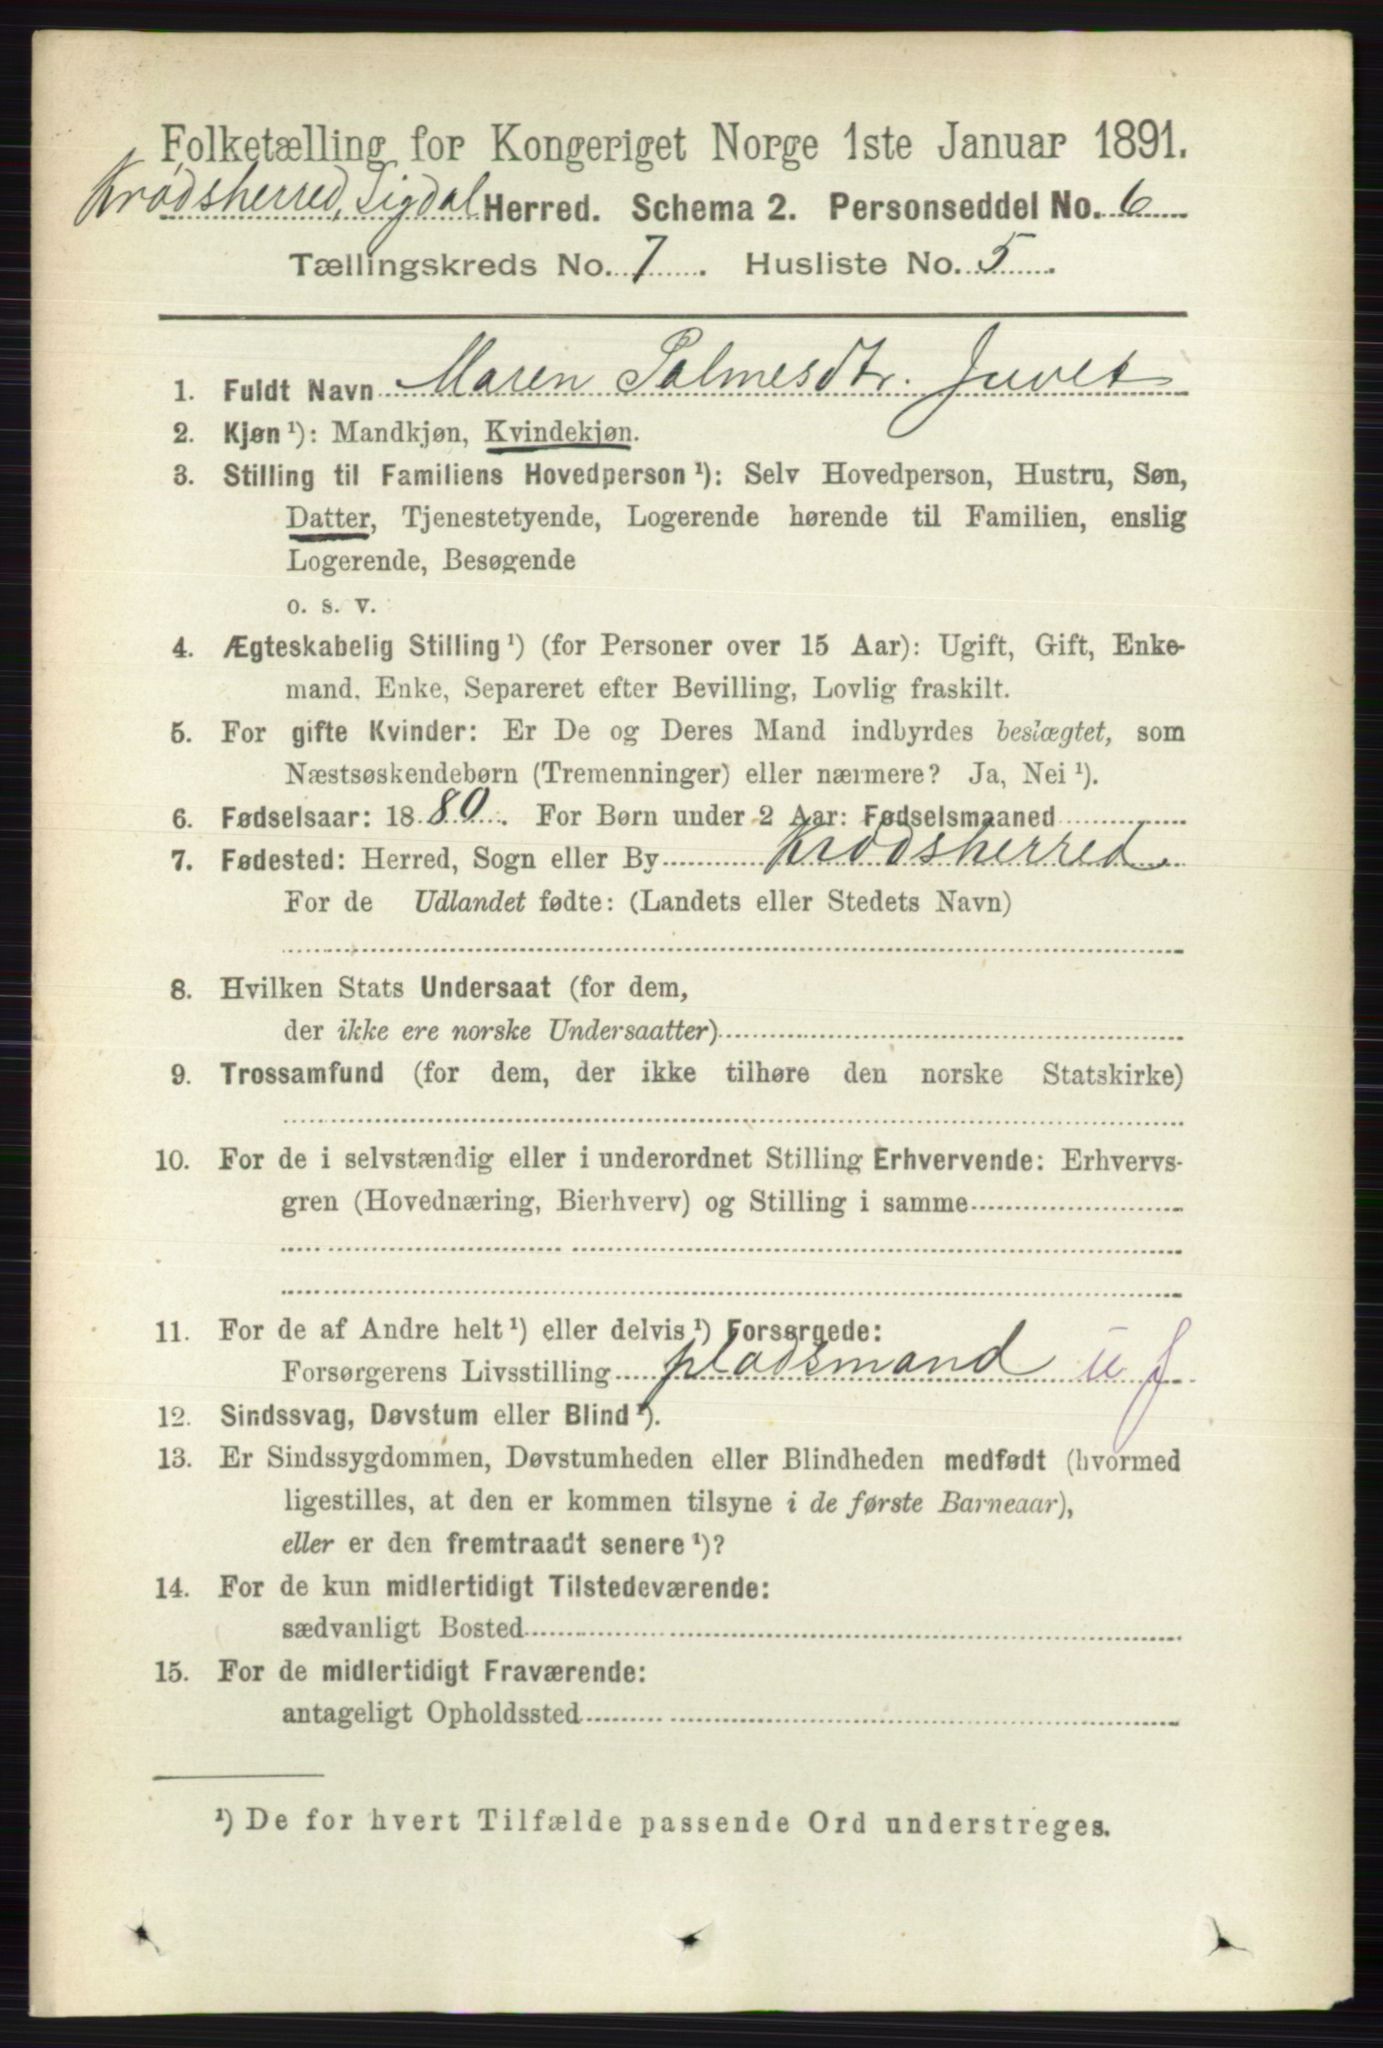 Folketælling for Kongeriget Norge 1ste Januar 1891.
Krødsherred, Sigdal Herred. Schema 2. Personseddel No. 6
Tællingskreds No. 7. Husliste No. 5.
1. Fuldt Navn Maren Palmesdtr. Juvet
2. Kjøn ¹): Mandkjøn, Kvindekjøn.
3. Stilling til Familiens Hovedperson ¹): Selv Hovedperson, Hustru, Søn,
Datter, Tjenestetyende, Logerende hørende til Familien, enslig
Logerende, Besøgende
o. s. v.
4. Ægteskabelig Stilling ¹) (for Personer over 15 Aar): Ugift, Gift, Enke-
mand, Enke, Separeret efter Bevilling, Lovlig fraskilt.
5. For gifte Kvinder: Er De og Deres Mand indbyrdes beslægtet, som
Næstsøskendebørn (Tremenninger) eller nærmere? Ja, Nei ¹).
6. Fødselsaar: 1880. For Børn under 2 Aar: Fødselsmaaned
7. Fødested: Herred, Sogn eller By Krødsherred.
For de Udlandet fødte: (Landets eller Stedets Navn)
8. Hvilken Stats Undersaat (for dem,
der ikke ere norske Undersaatter)
9. Trossamfund (for dem, der ikke tilhøre den norske Statskirke)
10. For de i selvstændig eller i underordnet Stilling Erhvervende: Erhvervs-
gren (Hovednæring, Bierhverv) og Stilling i samme
11. For de af Andre helt ¹) eller delvis ¹) Forsørgede:
Forsørgerens Livsstilling pladsmand u J
12. Sindssvag, Døvstum eller Blind ¹).
13. Er Sindssygdommen, Døvstumheden eller Blindheden medfødt (hvormed
ligestilles, at den er kommen tilsyne i de første Barneaar),
eller er den fremtraadt senere ¹)?
14. For de kun midlertidigt Tilstedeværende:
sædvanligt Bosted
15. For de midlertidigt Fraværende:
antageligt Opholdssted
¹) De for hvert Tilfælde passende Ord understreges.